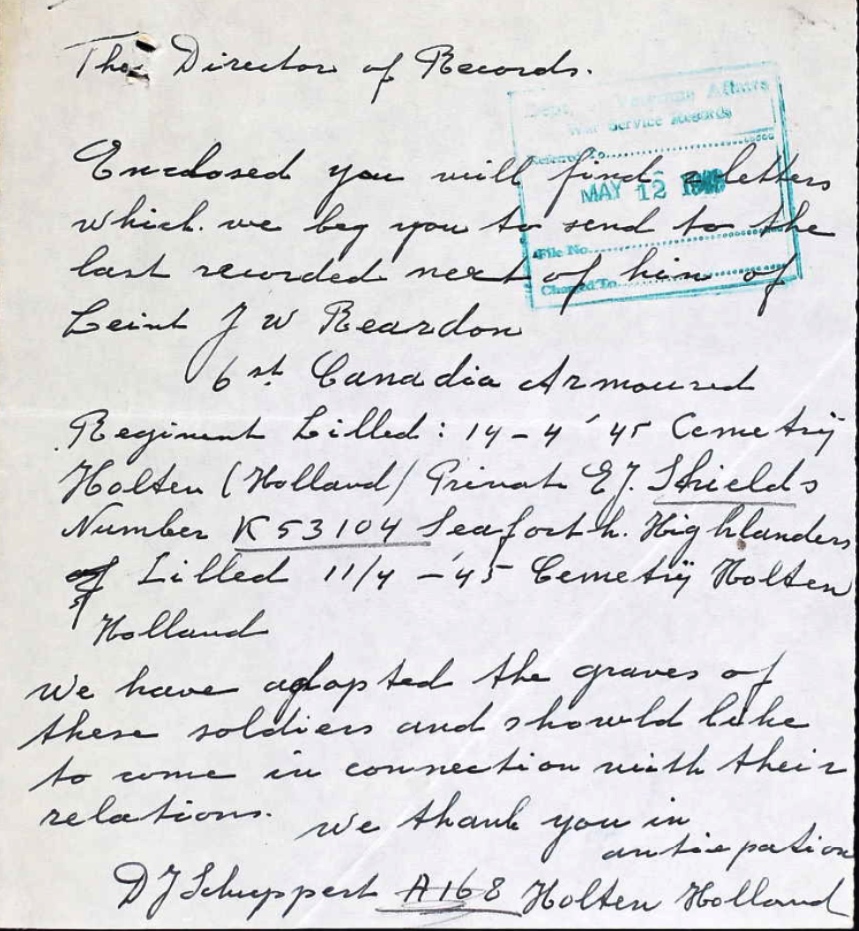 The Director of Records.
Dept. Veterans Affairs
War Service Records
Referred To
MAY 12
File No.
Charged To
Enclosed you will find 2 letters
which we beg you to send to the
last recorded next of kin of
Leint J W Reardon
6st Canadia Armoured
Regiment Killed: 14-4'45 Cemetrÿ
Holten (Holland) Private E.J. Shields
Number K53104 Seaforth. Highlanders
of Killed 11/4-'45 Cemetrÿ Holten
Holland
We have adopted the graves of
these soldiers and showld like
to come in connection with their
relations.
We thank you in
anticipation
D J Schuppert A168 Holten Holland